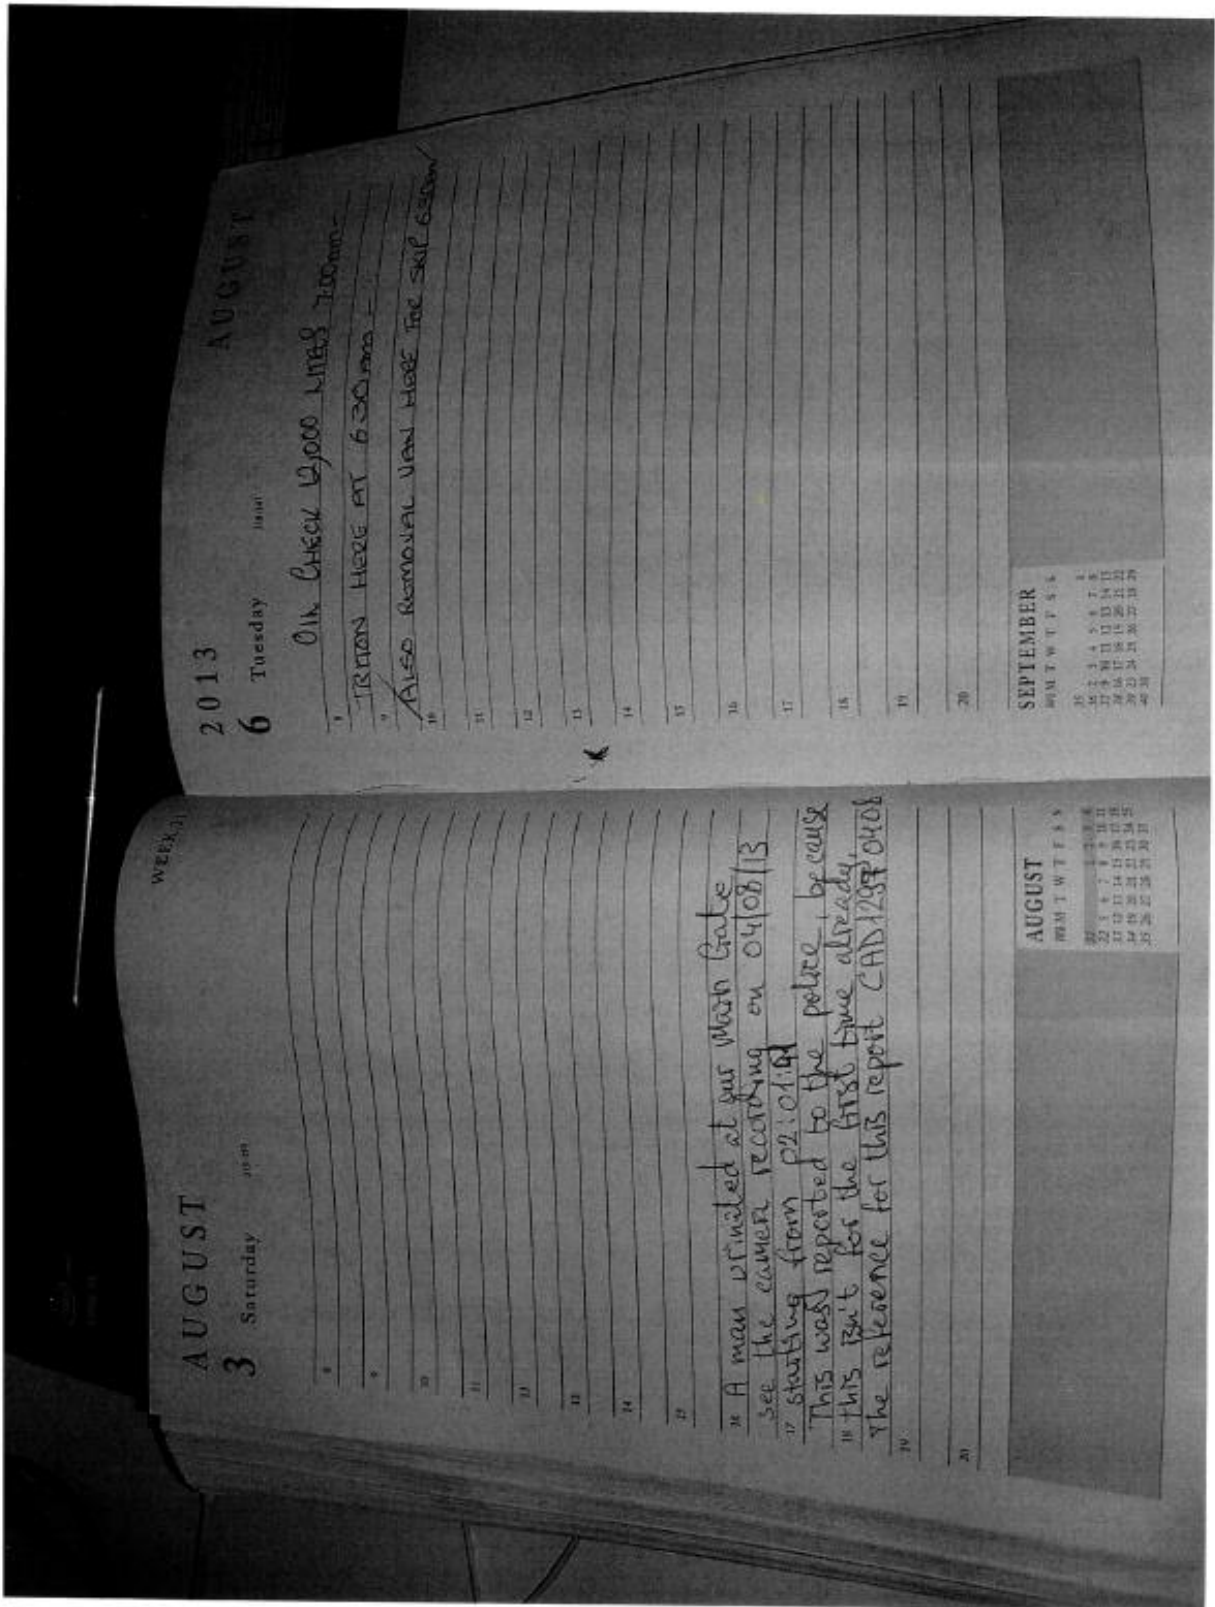 AUGUST
WEEK 31
3 Saturday
8
9
10
11
12
13
14
15
16 A man urinated at our Main Gate
see the camera recording on 04/08/13
17 starting from 02:01:
This was reported to the police, because
18 this isn't for the first time already,
The reference for this report CAD 1297 0408
19
20
AUGUST
M T W T F S S
2013
AUGUST
6 Tuesday
OIL CHECK 12,000 LITRES 7.00am-
8
TRITON HERE AT 6 30am -
9
ALSO REMOVAL VAN HERE FOR SKIP 6 30am
10
11
12
13
14
15
16
17
18
19
20
SEPTEMBER
M T W T F S S